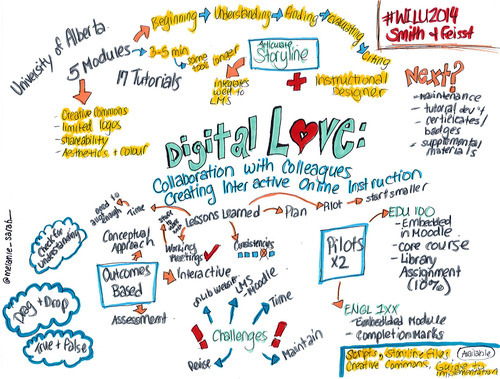 #WILU2014
Smith + Feisst
University of Alberta
Beginning → Understanding → Finding → Evaluating → Citing
5 Modules
3-5 min
some took longer
17 Tutorials
Articulate
Storyline
Integrates
well to
LMS
+ Instructional
Designer
- Creative Commons
- limited logos
- shareability
- Aesthetics + colour
Next?
- Maintenance
- tutorial dev't
- certificates/
badges
- supplemental
materials
Digital Love:
Collaboration with Colleagues
Creating Interactive Online Instruction
Lessons Learned
Time
Plan
Pilot → start smaller
Working
Meetings
Consistencies
@melanie_sarah_
Check for
understanding
Drag + Drop
True + False
Conceptual
Approach
Outcomes
Based
Interactive
Assessment
Pilots
x2
EDU 100
- Embedded
in Moodle
- core course
- Library
Assignment
(10%)
ENGL 1XX
- Embedded Module
- Completion Marks
on Lib website
LMS - Moodle
Time
! Challenges !
Revise
Maintain
Scripts, Storyline Files, Available
Creative Commons, Guide to
implementation